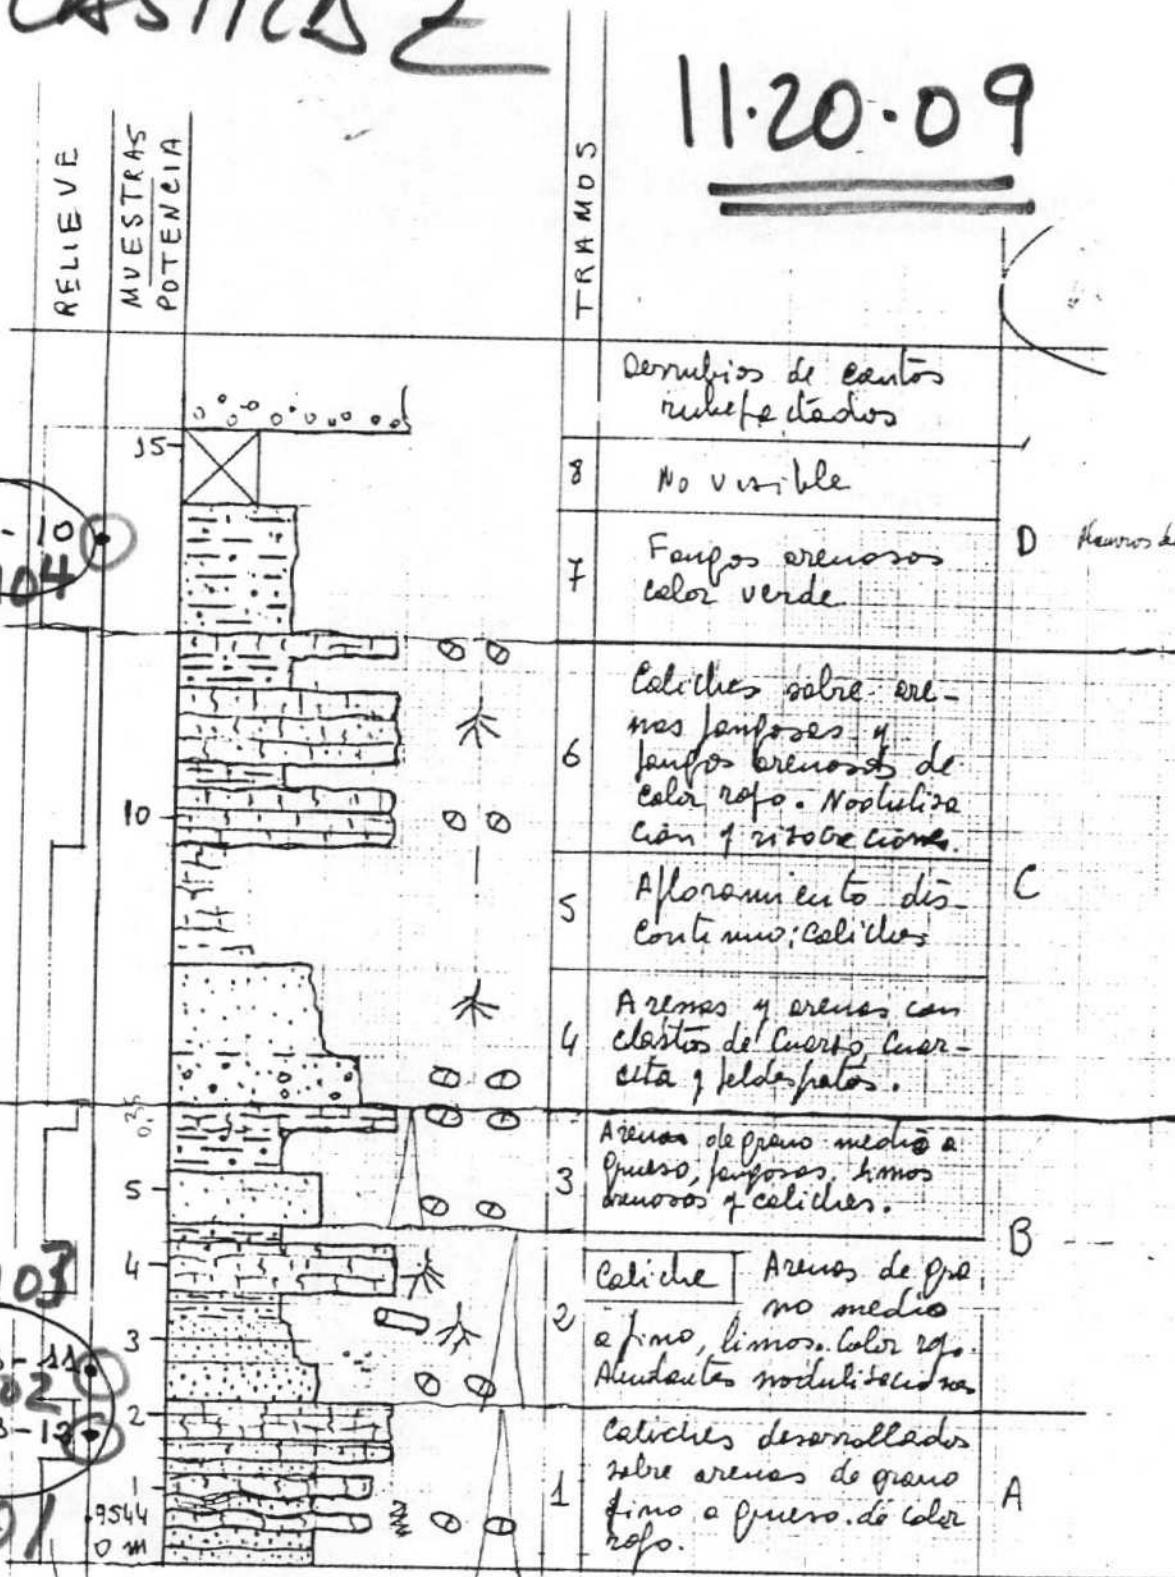 11.20.09
RELIEVE
MUESTRAS
POTENCIA
TRAMOS
Derrubios de cantos
rubefactados
15
8
No visible
10
104
7
Fangos arenosos
color verde
D
6
Caliches sobre are-
nas fangosas y
fangos arenosos de
color rojo. Nodulisa
ción y
10
5
Afloramiento dis-
continuo; caliches
C
4
Arenas y arenas con
clastos de Cuarzo, Cuar-
cita y feldespatos.
3
Arenas de grano medio a
grueso, fangosas, limos
arenosos y caliches.
5
B
4
103
2
Caliche
Arenas de gra
no medio
a fino, limos. Color rojo.
Abundantes nodulisaciones
3
11
02
2
1
Caliches desarrollados
sobre arenas de grano
fino a grueso. de color
rojo.
A
1
9544
0 m